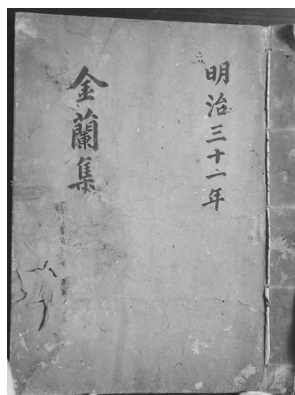 明治三十一年
金蘭集